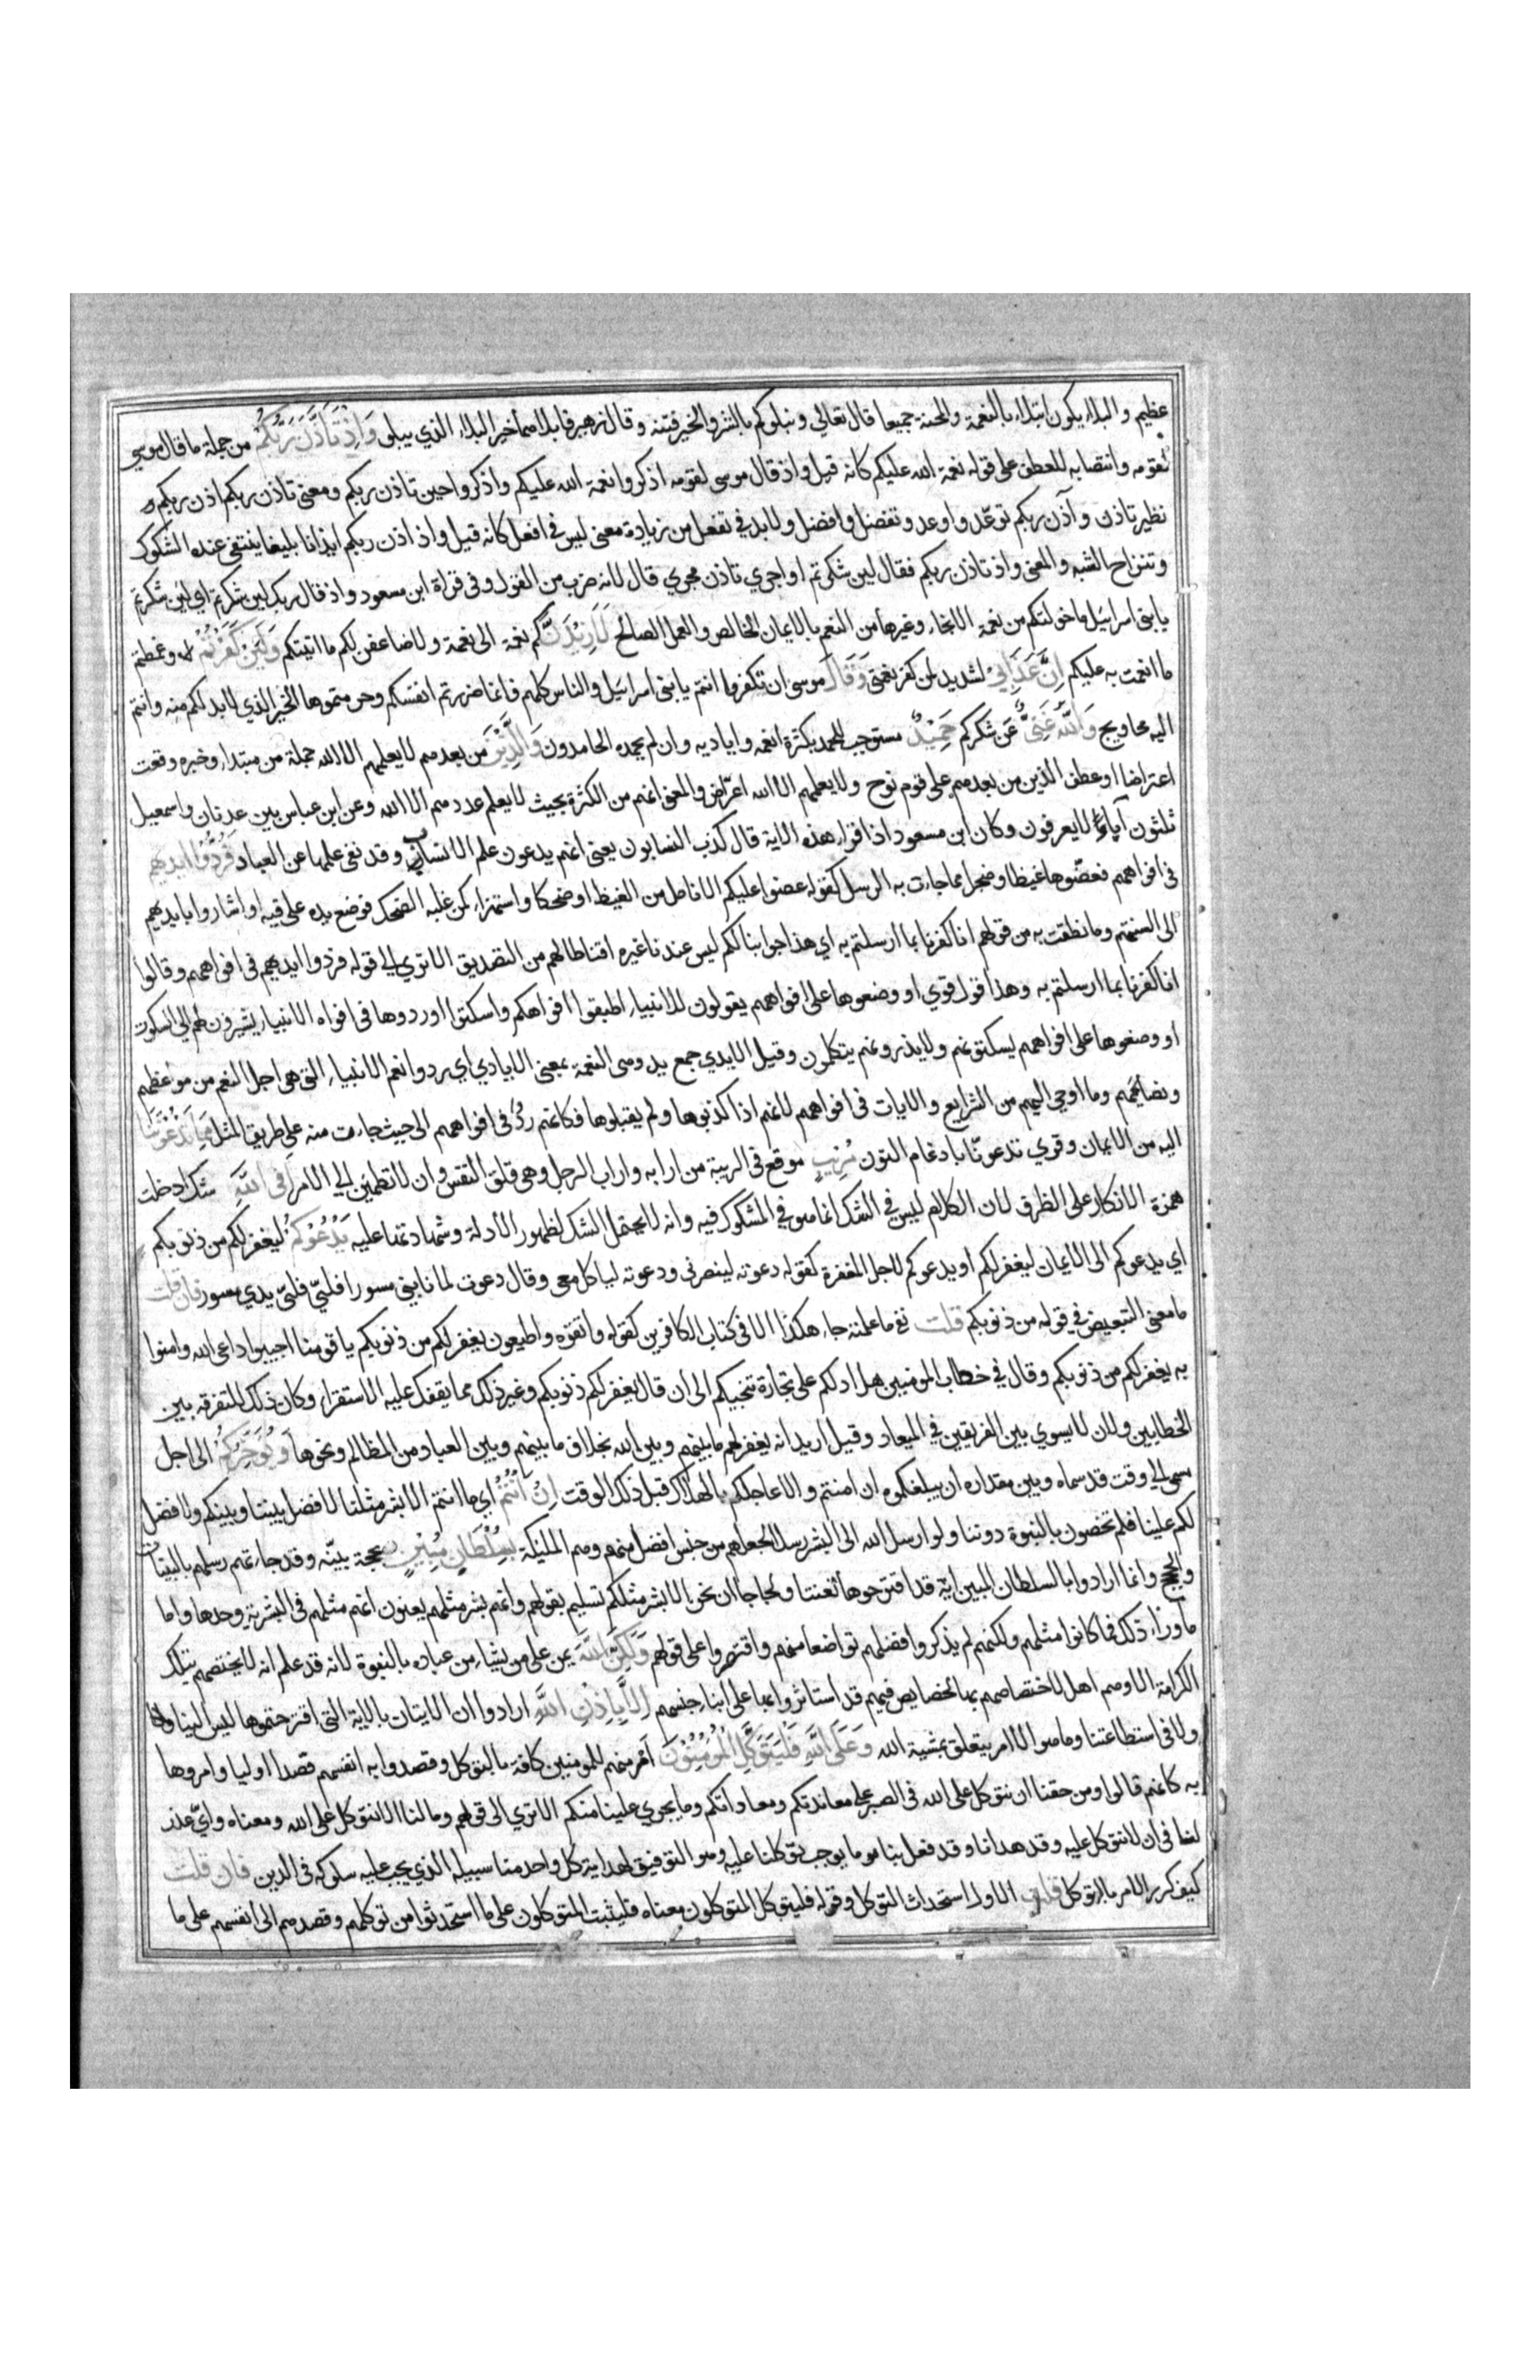 عظيم والبلاء يكون ابتلاء بالنعمة والمحنة جميعا قال تعالي ونبلوكم بالشر والخير فتنة وقال زهير فابلاهما خير البلاء الذي يبلو وَاِذْ تَاَذَّنَ رَبُّكُمْ من جملة ما قال موسي
لقومه وانتصابه للعطف علي قوله نعمة الله عليكم كانه قيل واذ قال موسى لقومه اذكروا نعمة الله عليكم واذكروا حين تاذن ربكم ومعنى تاذن ربكم اذن ربكم و
نظير تاذن وآذن ربكم توعّد واوعد وتفضل وافضل ولا بد في تفعل من زيادة معنى ليس في افعل كانه قيل واذ اذن ربكم ايذانا بليغا ينتفي عنده الشكوك
وتنزاح الشبه والمعنى واذ تاذن ربكم فقال لين شكرتم او اجري تاذن مجري قال لانه ضرب من القول وفى قراة ابن مسعود واذ قال ربك لين شكرتم اي لئن شكرتم
يا بنى اسرائيل ما خولتكم من نعمة الانجاء وغيرها من النعم بالايمان الخالص والعمل الصالح لَاَزِيْدَنَّكُم نعمة الى نعمة ولاضاعفن لكم ما اتيتكم وَلَئِنْ كَفَرْتُمْ وغمطتم
ما انعمت به عليكم اِنَّ عَذَابِيْ لشديد لمن كفر نعمتي وَقَالَ موسى ان تكفروا انتم يا بنى اسرائيل والناس كلهم فانما ضررتم انفسكم وحرمتموها الخير الذي لا بد لكم منه وانتم
اليه محاويج وَاللّٰهُ غَنِيٌّ عن شكركم حَمِيْدٌ مستوجب للحمد بكثرة انعمه واياديه وان لم يحمده الحامدون وَالَّذِيْنَ من بعدهم لا يعلمهم الا الله جملة من مبتداء وخبره وقعت
اعتراضا او عطف الذين من بعدهم علي قوم نوح ولا يعلمهم الا الله اعتراض والمعنى انهم من الكثرة بحيث لا يعلم عددهم الا الله وعن ابن عباس بين عدنان واسمعيل
ثلثون لا يعرفون وكان ابن مسعود اذا قراء هذه الاية قال كذب النسابون يعنى انهم يدعون علم الانساب وقد نفى علمها عن العباد فَرُدُّوا ايديهم
فى افواههم فعضّوها غيظا وضجرا مما جاءت به الرسل كقوله عضوا عليكم الانامل من الغيظ او ضحكا واستهزاء كمن غلبه الضحك فوضع يده على فيه او اشاروا بايديهم
الى السنتهم وما نطقت به من قولهم انا كفرنا بما ارسلتم به اي هذا جوابنا لكم ليس عندنا غيره اقناطا لهم من التصديق الا تري الي قوله فردوا ايديهم فى افواههم وقالوا
انا كفرنا بما ارسلتم به وهذا قول قوي او وضعوها على افواههم يقولون للانبياء اطبقوا افواهكم واسكتوا او ردوها فى افواه الانبياء يشيرون لهم الي السكوت
او وضعوها على افواههم يسكتونهم ولا يذرونهم يتكلمون وقيل الايدي جمع يد وهى النعمة بمعنى الايادي اي ردوا نعم الانبياء التي هى اجل النعم من مواعظهم
ونصايحهم وما اوحي اليهم من الشرايع والايات فى افواههم لانهم اذا كذبوها ولم يقبلوها فكانهم ردوها فى افواههم الى حيث جاءت منه على طريق المثل مِمَّا تَدْعُوْنَنَا
اليه من الايمان وقري تدعونّا بادغام النون مُرِيبٍ موقع في الريبة من ارابه واراب الرجل وهى قلق النفس وان لا تطمئن الي الامر اَفِى اللّٰهِ شك ادخلت
همزة الانكار على الظرف لان الكلام ليس في الشك انما هو في المشكوك فيه وانه لا يحتمل الشك لظهور الادلة وشهادتها عليه يَدْعُوْكُمْ ليغفر لكم من ذنوبكم
اي يدعوكم الى الايمان ليغفر لكم او يدعوكم لاجل المغفرة كقوله دعوته لينصرنى ودعوته لياكل معى وقال دعوت لما نابني مسورا فلبّي فلبّي يدي مسور فان قلت
ما معنى التبعيض في قوله من ذنوبكم قلت ما علمته جاء هكذا الا فى كتاب الكافرين كقوله واتقوه واطيعون يغفر لكم من ذنوبكم يا قومنا اجيبوا داعى الله وامنوا
به يغفر لكم من ذنوبكم وقال في خطاب المومنين هل ادلكم على تجارة تنجيكم الى ان قال يغفر لكم ذنوبكم وغير ذلك مما يقفك عليه الاستقراء وكان ذلك للتفرقه بين
الخطابين ولان لا يسوي بين الفريقين في الميعاد وقيل اريد انه يغفر لهم ما بينهم وبين الله بخلاف ما بينهم وبين العباد من المظالم ونحوها وَيُؤَخِّرَكُمْ الى اجل
مسمى الي وقت قد سماه وبين مقداره ان يبلغكموه ان امنتم والا عاجلكم بالهلاك قبل ذلك الوقت اِنْ اَنْتُمْ اي ما انتم الا بشر مثلنا لا فضل بيننا وبينكم ولا فضل
لكم علينا فلم تخصون بالنبوة دوننا ولو ارسل الله الى البشر رسلا لجعلهم من جنس افضل منهم وهم المليكة بِسُلْطَانٍ مُّبِيْنٍ بحجة بينّه وقد جاءتهم رسلهم بالبينات
والحجج وانما ارادوا بالسلطان المبين ايّة قد اقترحوها تعنتا ولجاجا ان نحن الا بشر مثلكم تسليم لقولهم وانهم بشر مثلهم يعنون انهم مثلهم فى البشرية وحدها واما
ما وراء ذلك فما كانوا مثلهم ولكنهم لم يذكروا فضلهم تواضعا منهم واقتصروا على قولهم وَلٰكِنَّ اللّٰهَ يمن على من يشاء من عباده بالنبوة لانه قد علم انه لا يختصهم بتلك
الكرامة الا وهم اهل لاختصاصهم بها لخصايص فيهم قد استاثروا بها على ابناء جنسهم اِلَّا بِاِذْنِ اللّٰهِ ارادوا ان الايتان بالاية التى اقترحتموها ليس الينا
ولا فى استطاعتنا وما هو الا امر يتعلق بمشية الله وَعَلَى اللّٰهِ فَلْيَتَوَكَّلِ الْمُؤْمِنُوْنَ امر منهم للمومنين كافة بالتوكل وقصدوا به انفسهم قصدا اوليا وامروها
به كانهم قالوا ومن حقنا ان نتوكل على الله فى الصبر على معاندتكم ومعاداتكم وما يجري علينا منكم الا تري الى قولهم وما لنا الا نتوكل على الله ومعناه وايّ عذر
لنا فى ان لا نتوكل عليه وقد هدانا وقد فعل بنا هو ما يوجب توكلنا عليه وهو التوفيق لهداية كل واحد منا سبيله الذي يجب عليه سلوكه فى الدين فان قلت
كيف كرر الامر بالتوكل قلت الاول استحداث التوكل وقوله فليتوكل المتوكلون معناه فليثبت المتوكلون على ما استحدثوا من توكلهم وقصدهم الى انفسهم على ما